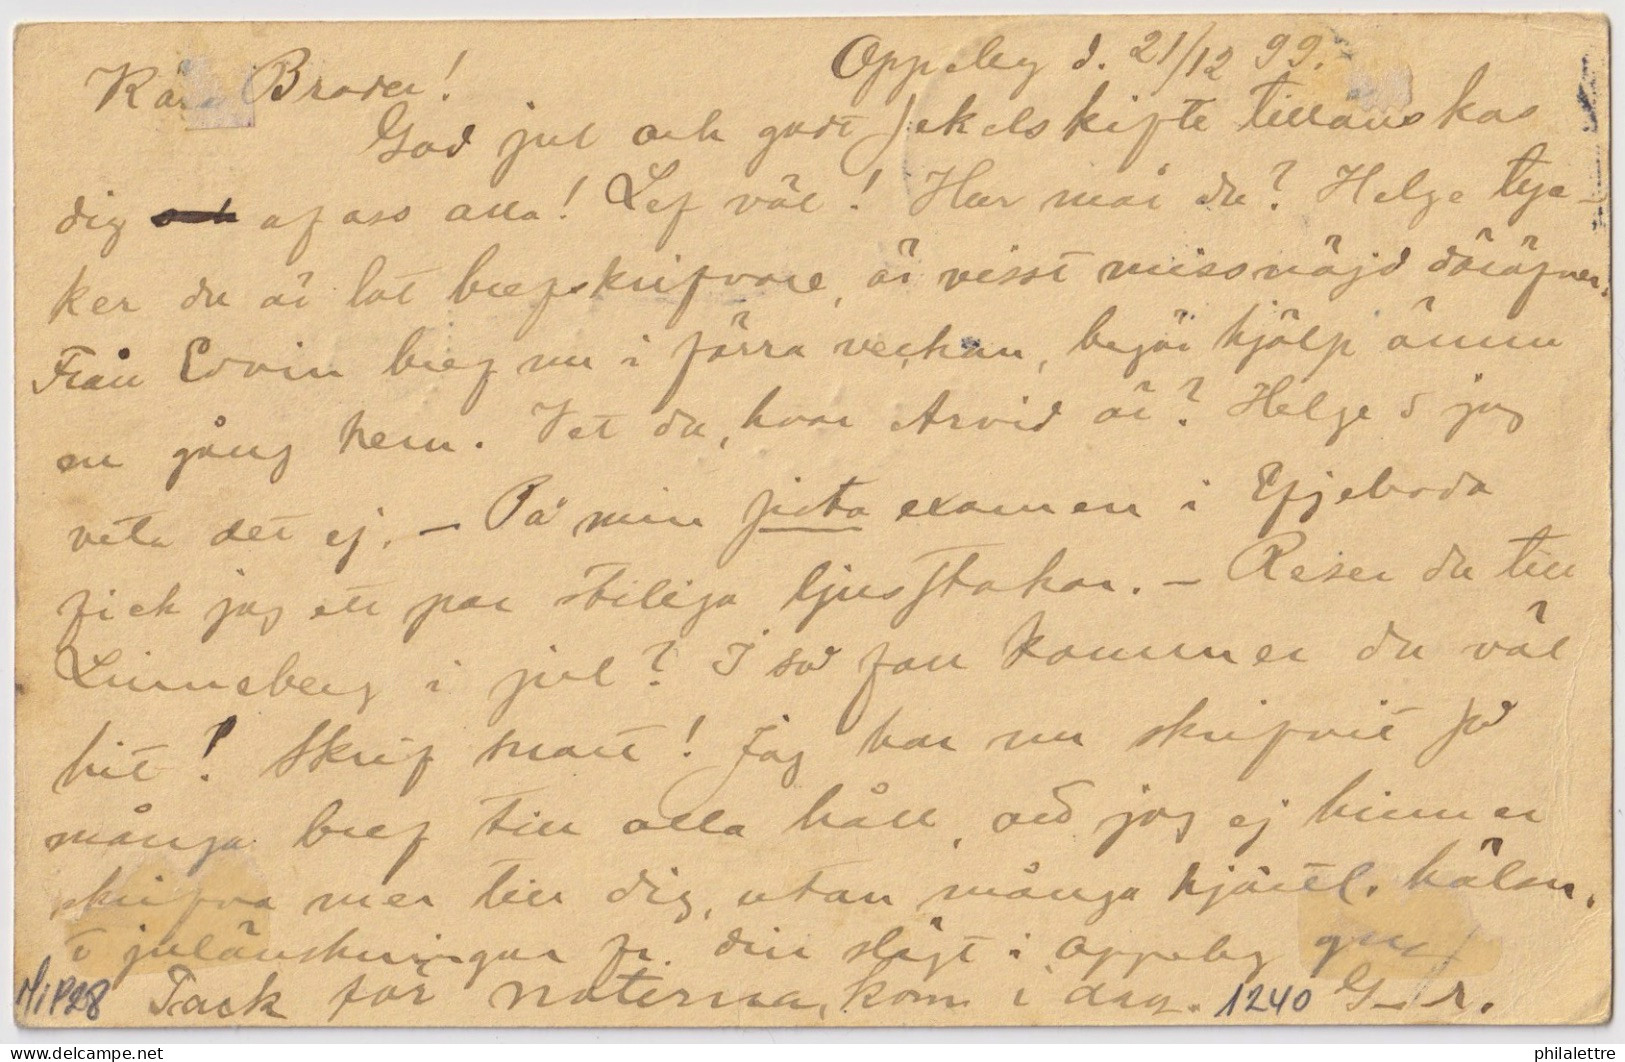 Oppeby d. 21/12 99.
Kära Broder!
God jul och godt sekelskifte tillönskas
dig af oss alla! Lef väl! Hur mår du? Helge tyc-
ker du är lat brefskrifvare, är visst missnöjd däröfver.
Från Edvin bref nu i förra veckan, begär hjälp ännu
en gång hem. Vet du, hvar Arvid är? Helge o jag
veta det ej. – På min sista examen i Efjeboda
fick jag ett par stiliga ljusstakar. – Reser du till
Linneberg i jul? I så fall kommer du väl
hit! Skrif snart! Jag har nu skrifvit så
många bref till alla håll, att jag ej hinner
skrifva mer till dig, utan många hjärtl. hälsn.
o julönskningar fr. din släkt i Oppeby
MiP28 Tack för noterna, kom i dag. 1240 G–r.